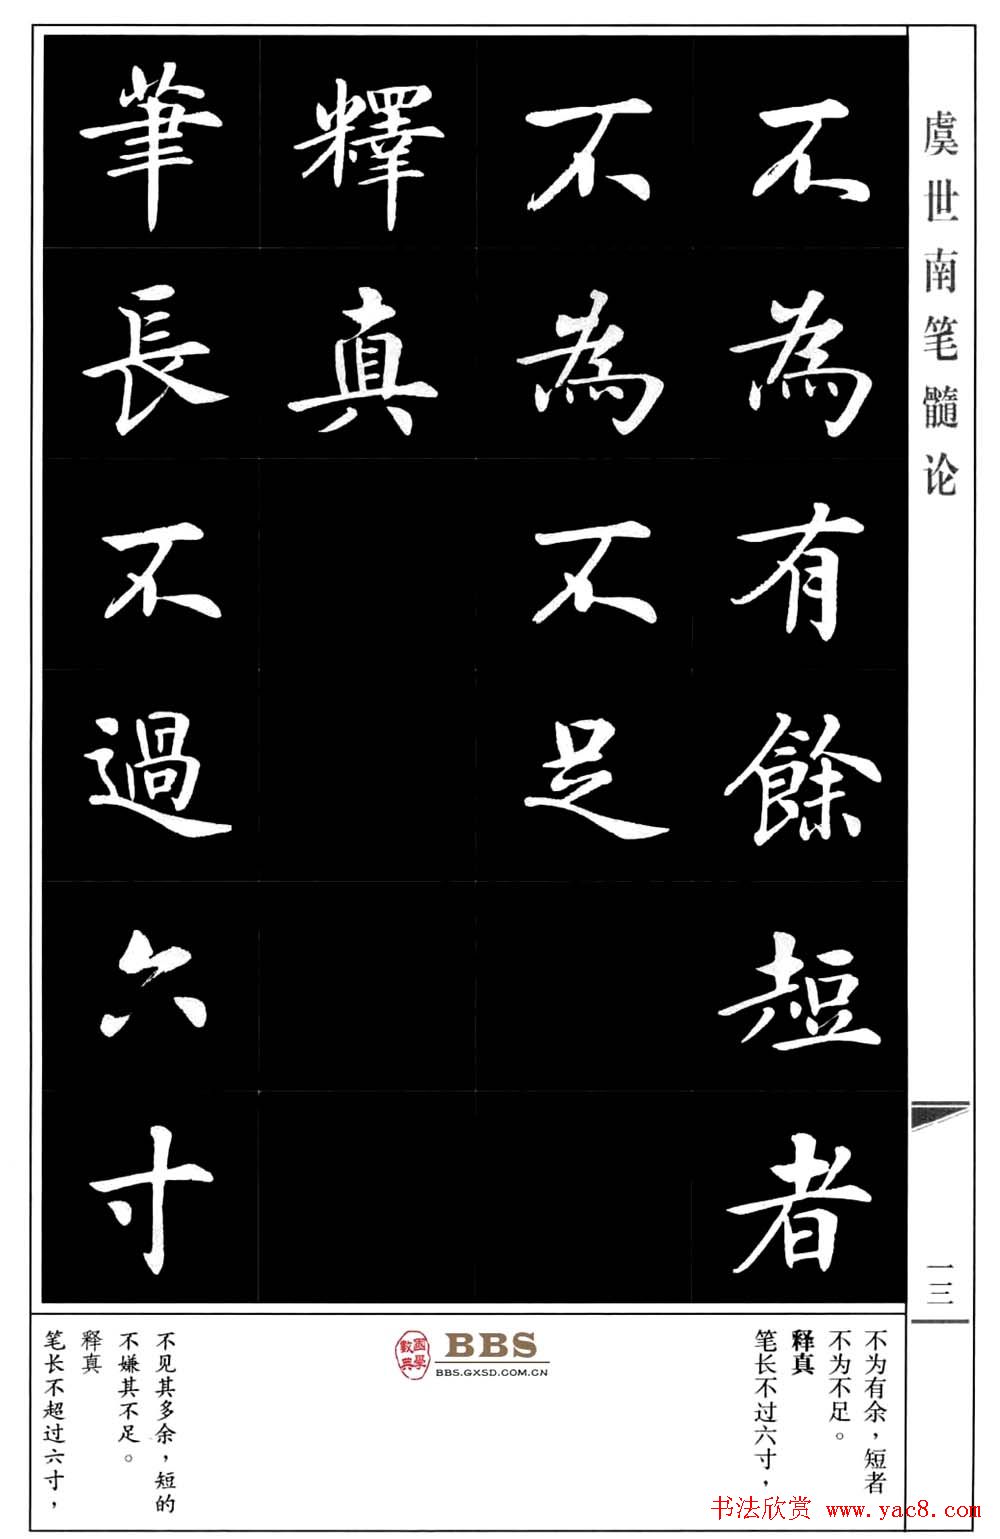 虞世南笔髓论
一三
不為有餘短者
不為不足
釋真
筆長不過六寸
不为有余，短者
不为不足。
释真
笔长不过六寸，
國學數典
BBS
BBS.GXSD.COM.CN
不见其多余，短的
不嫌其不足。
释真
笔长不超过六寸，
书法欣赏 www.yac8.com